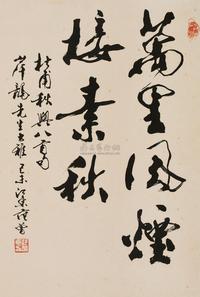 萬里風煙
接素秋
杜甫秋興八首句
岸龍先生大雅 己未 梁